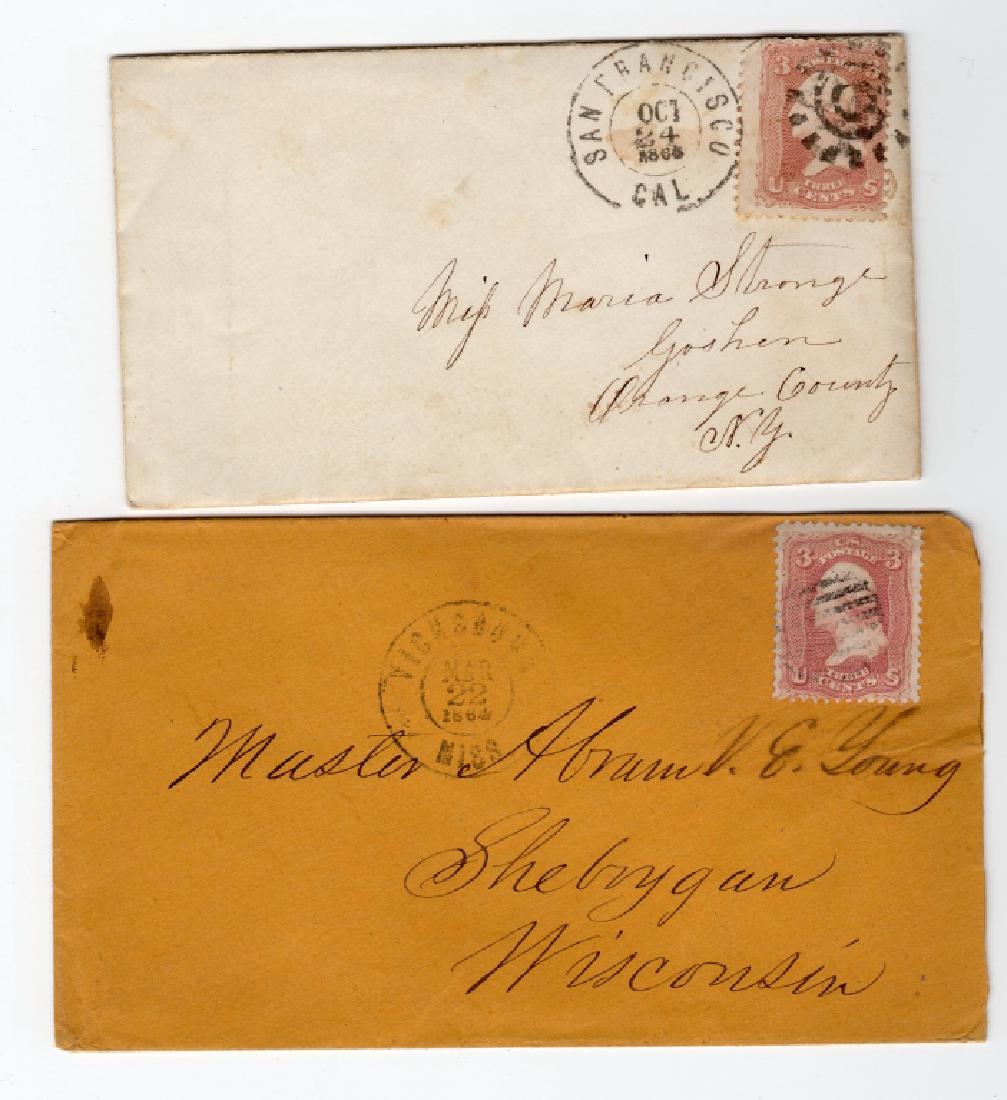 SAN FRANCISCO
OCT
24
1866
CAL
3
THREE
U CENTS S
Miſs Maria Strong
Goshen
Orange County
N.Y.
VICKSBURG
MAR
22
1864
MISS
3 U.S. 3
POSTAGE
THREE
U CENTS S
Master Abram V. E. Young
Sheboygan
Wisconsin